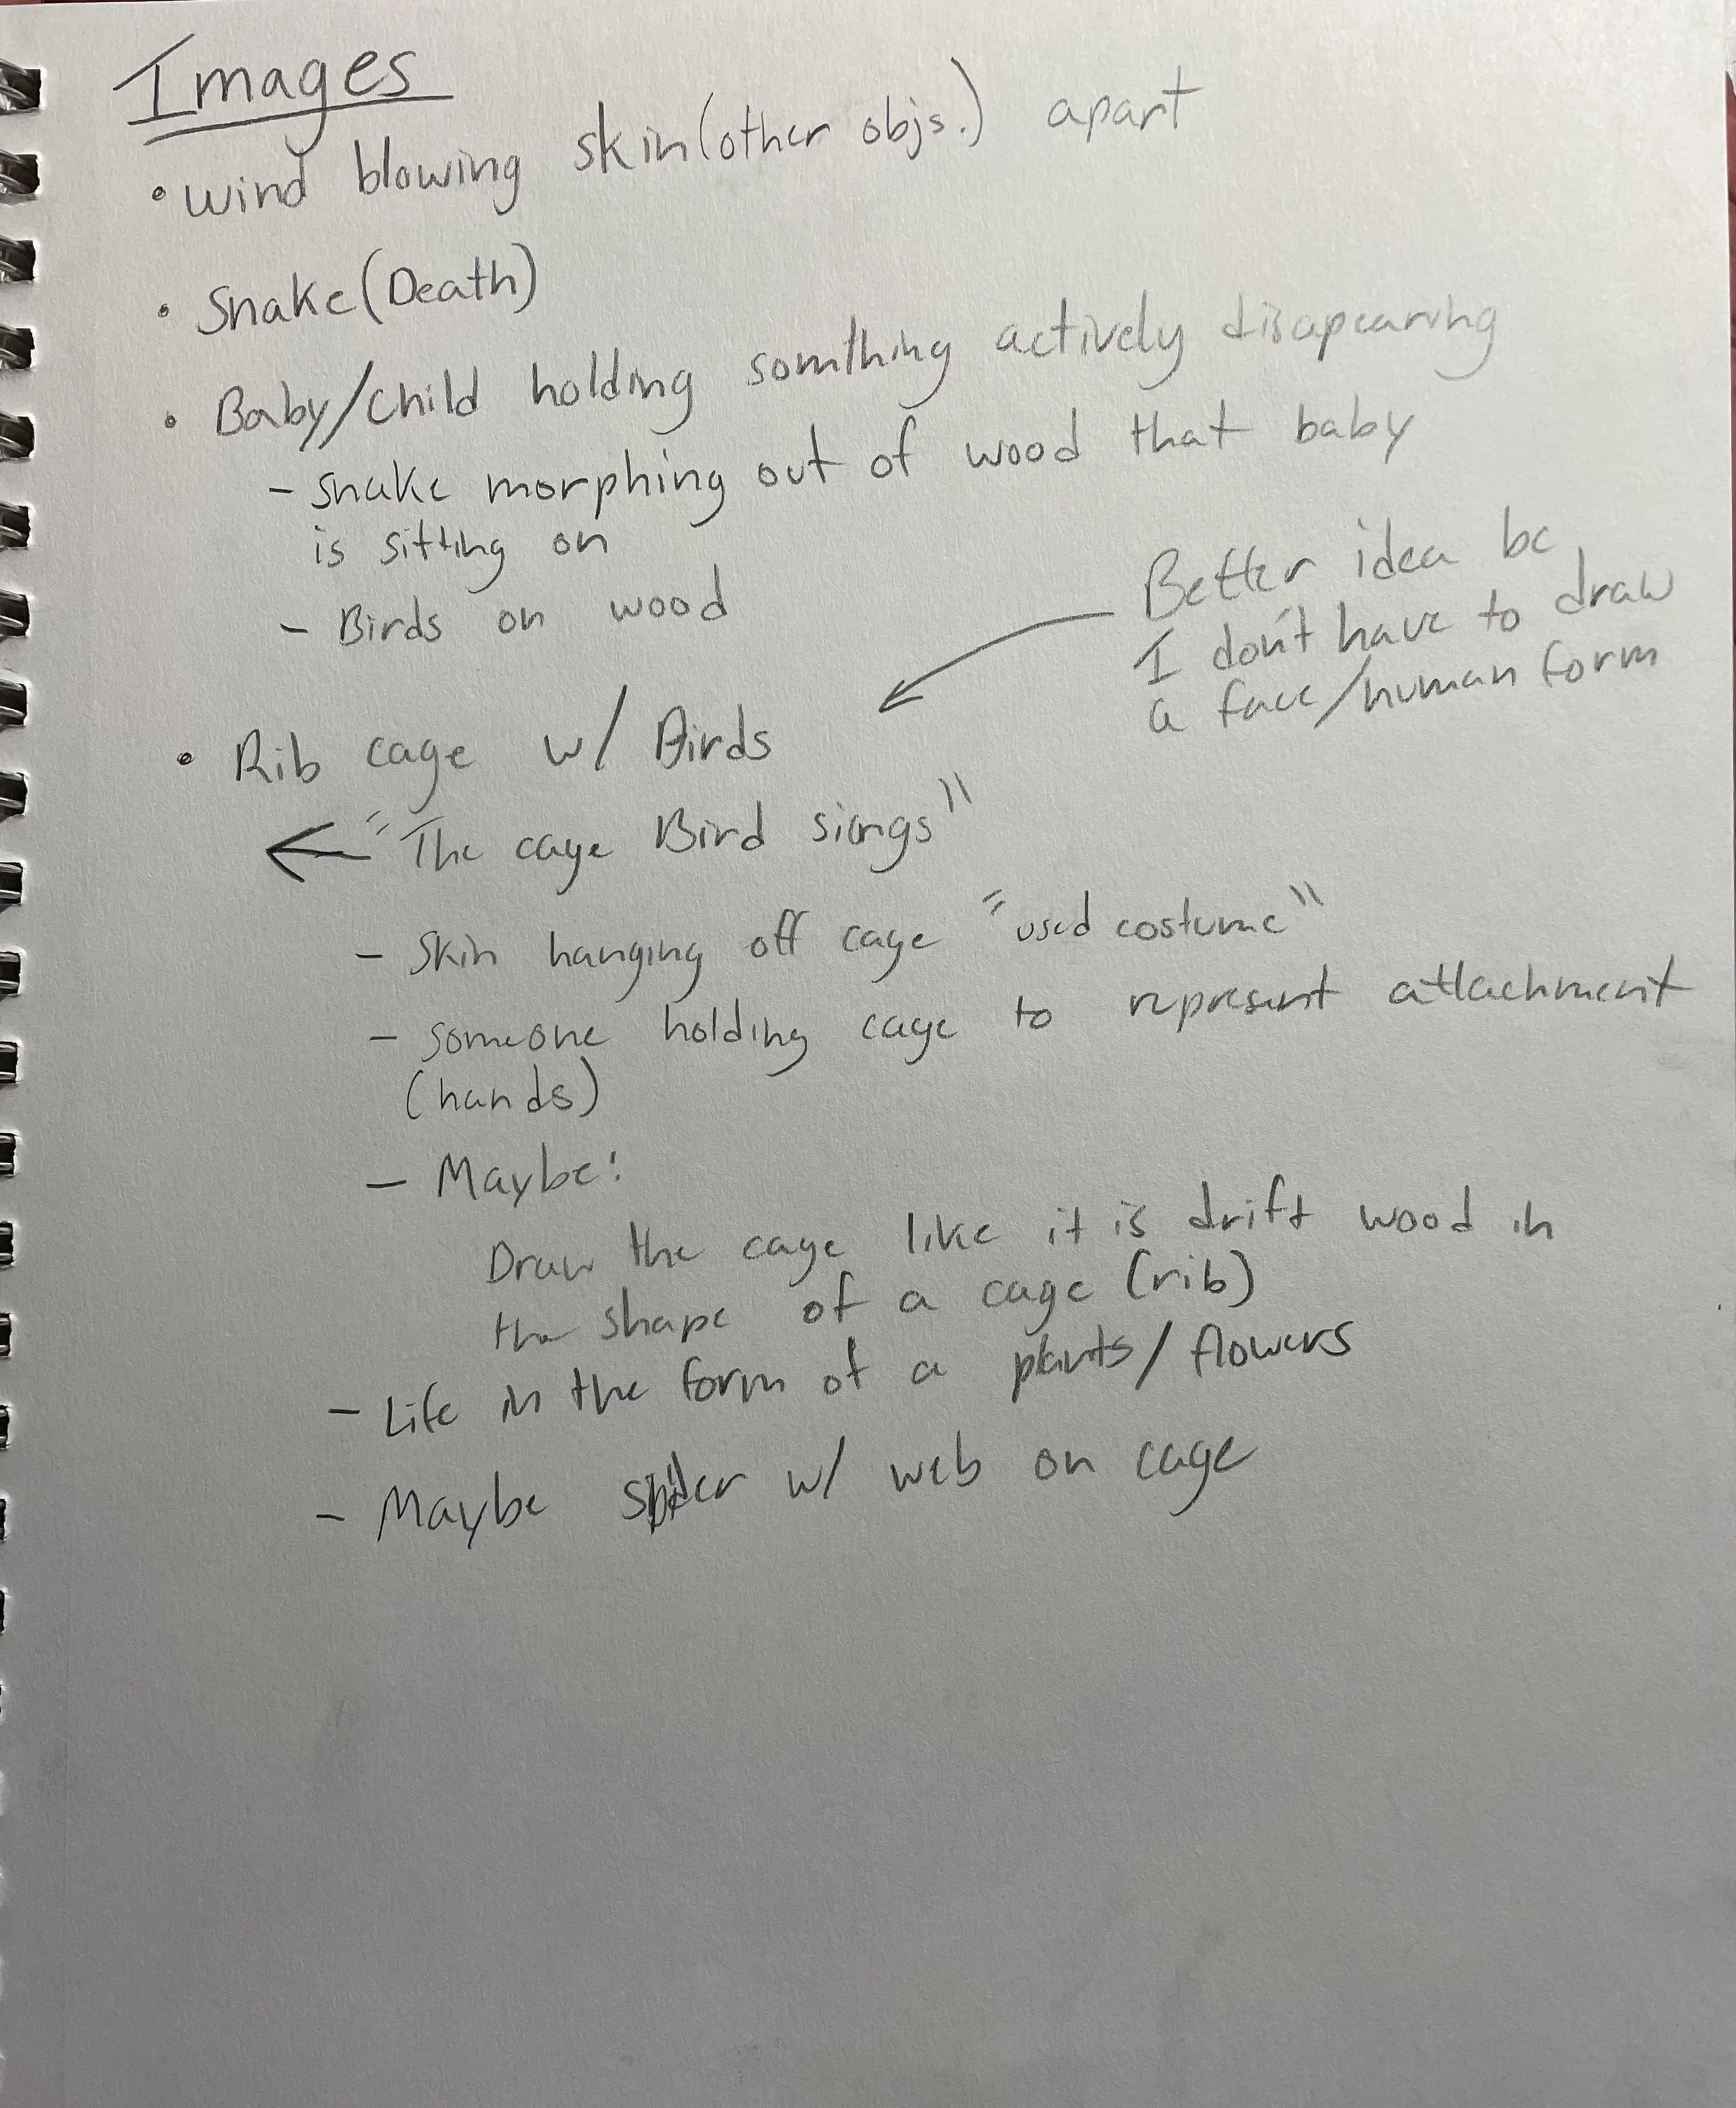 Images
• wind blowing skin (other objs.) apart
• Snake (Death)
• Baby/child holding somthing actively disapearing
- snake morphing out of wood that baby
is sitting on
- Birds on wood
Better idea bc
I don't have to draw
a face/human form
• Rib cage w/ Birds
"The cage Bird sings"
- Skin hanging off cage "used costume"
- someone holding cage to represent attachment
(hands)
- Maybe:
Draw the cage like it is drift wood in
the shape of a cage (rib)
- Life in the form of a plants/flowers
- Maybe spider w/ web on cage